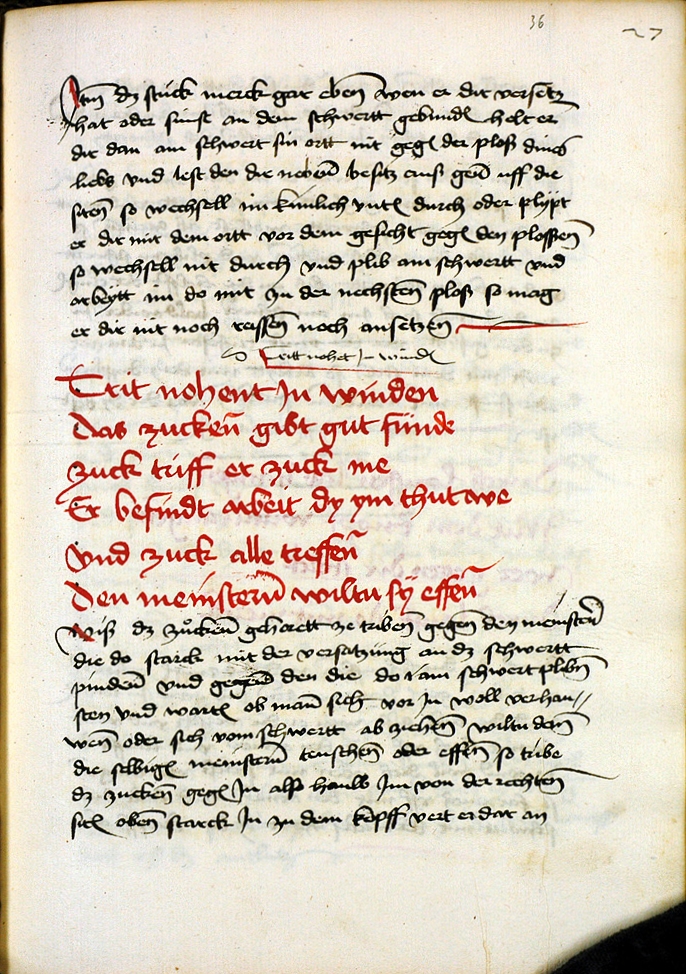 36
27
Itm dz stuck merck gar eben wen er dir versetz
hat oder sunst an dem schwertt gebundē helt er
dir dan am schwert sin ortt nit gegē der ploß dines
liebs vnd lest den die nebeñ besitz
uff die
sitē so wechsell im kunlich vntē durch oder plypt
er dir mit dem ortt vor dem gesicht gegē den plossen
so wechsell nit durch vnd plib am schwertt vnd
arbeytt im do mit zu der nechsten ploß so mag
er dir nit noch reissen noch ansetzen
Tritt nohet In windē
Trit nohent In winden
Das zucken̄ gibt gut funde
zuck triff er zuck me
Er befindt arbeit dy ym thut we
vnd zuck alle treffen̄
Den meinstern̄ wiltu sy effen̄
Wiß dz zucken̄ gehorett ze triben̄ gegen den meinstern̄
die do starck mit der versatzung an dz schwertt
pinden̄ vnd den die do am schwert plibn̄
sten vnd wartē ob man̄ sich vor In woll verhau//
wen̄ oder sich vom schwertt ab ziehen̄ wiltu den̄
die selbigē meinstern̄ teuschen̄ oder effen̄ so tribe
dz zucken̄ gegē In also hauw Im von der rechten̄
sitē oben̄ starck In zu dem kopff vert er dar an